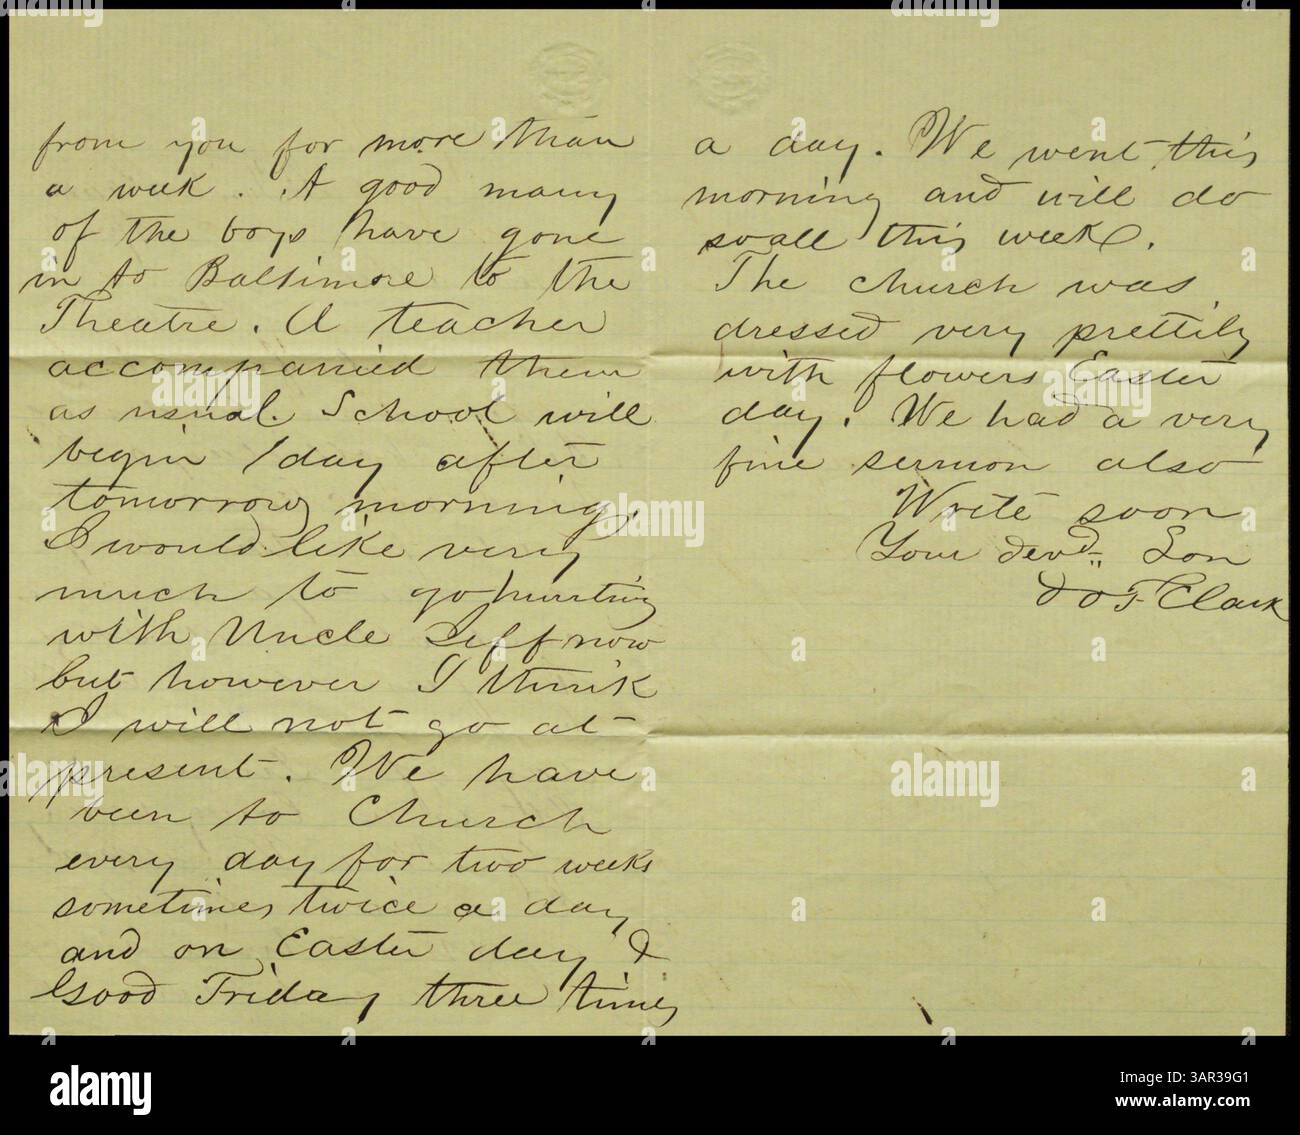 from you for more than
a week. A good many
of the boys have gone
in to Baltimore to the
Theatre. A teacher
accompanied them
as usual. School will
begin 1 day after
tomorrow morning.
I would like very
much to go hunting
with Uncle Jeff now
but however I think
I will not go at
present. We have
been to Church
every day for two weeks
sometimes twice a day
and on Easter day &
Good Friday three times
a day. We went this
morning and will do
so all this week.
The church was
dressed very prettily
with flowers Easter
day. We had a very
fine sermon also
Write soon
Your devd. Son
Clark
alamy
Image ID: 3AR39G1
www.alamy.com